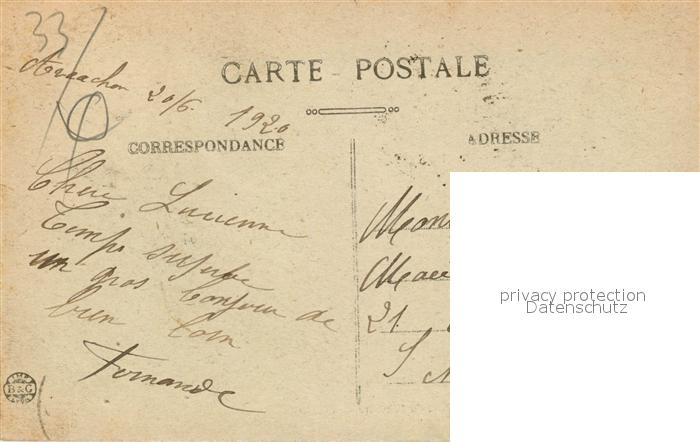 33
Arcachon 20/6 1920
CARTE POSTALE
CORRESPONDANCE
ADRESSE
Chère Lucienne
Temps superbe
un gros bonjour de
bien loin
Fernande
21
privacy protection
Datenschutz
B&G